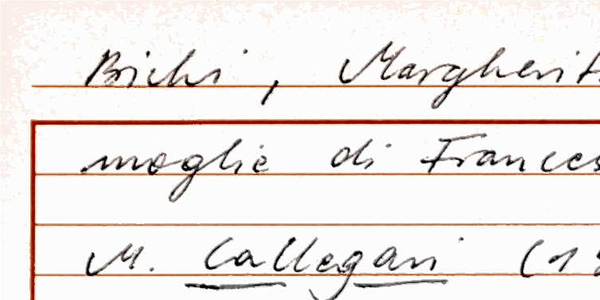 Bichi, Margherit
moglie di Frances
M. Callegari (1